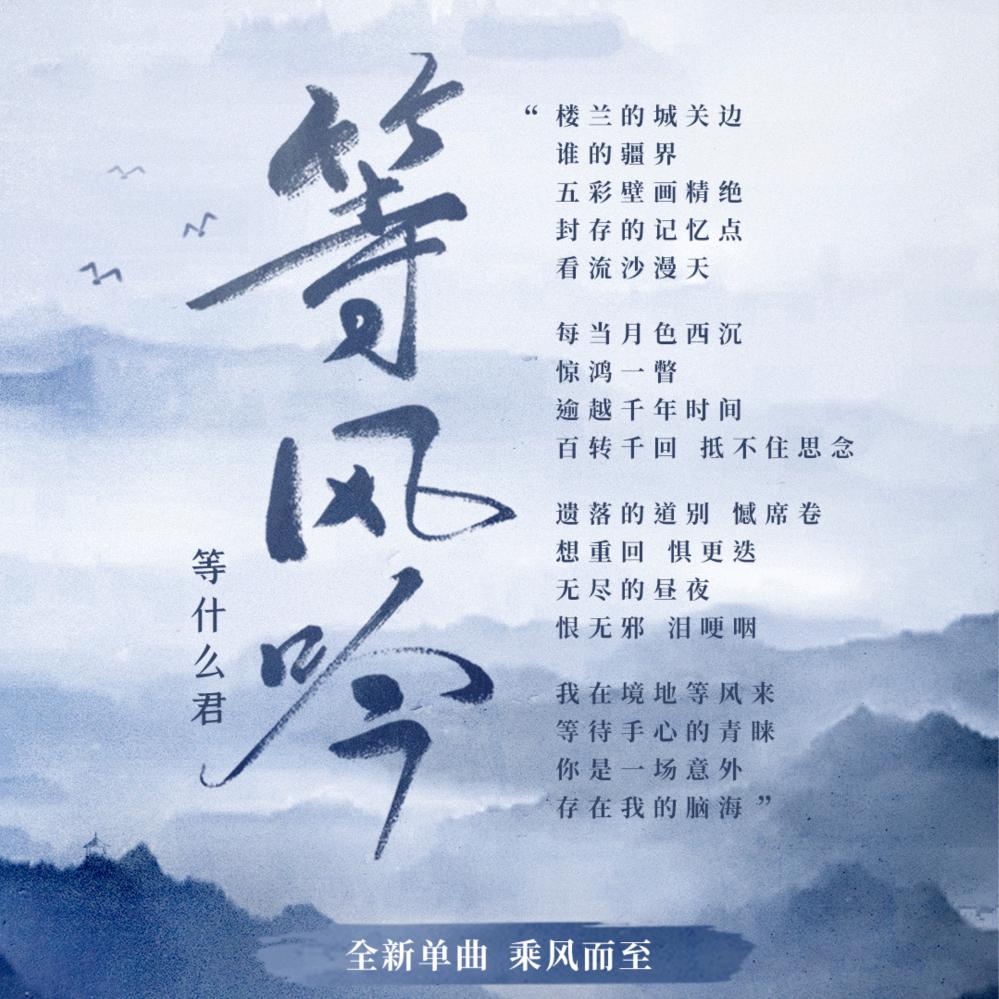 等风吟
等什么君
“楼兰的城关边
谁的疆界
五彩壁画精绝
封存的记忆点
看流沙漫天
每当月色西沉
惊鸿一瞥
逾越千年时间
百转千回 抵不住思念
遗落的道别 憾席卷
想重回 惧更迭
无尽的昼夜
恨无邪 泪哽咽
我在境地等风来
等待手心的青睐
你是一场意外
存在我的脑海”
全新单曲 乘风而至